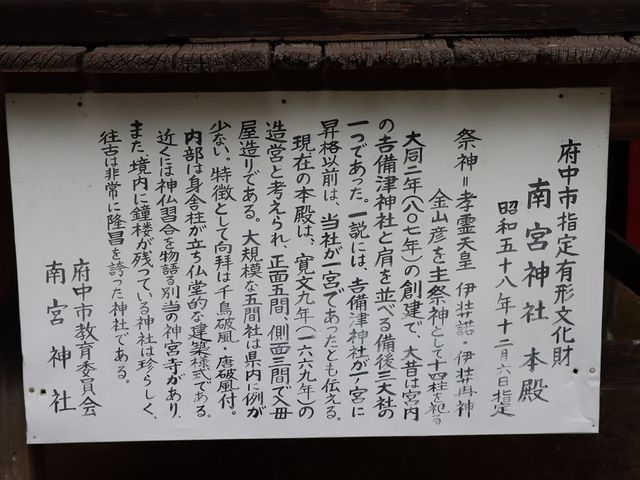 府中市指定有形文化財
南宮神社本殿
昭和五十八年十二月六日指定
祭神=孝霊天皇 伊弉諾・伊弉冉神
金山彦を主祭神として十四柱を祀る
大同二年(八〇七年)の創建で、大昔は宮内
の𠮷備津神社と肩を並べる備後三大社の
一つであった。一説には、𠮷備津神社が一宮に
昇格以前は、当社が一宮であったとも伝える。
現在の本殿は、寛文九年(一六六九年)の
造営と考えられ、正面五間、側面三間で入母
屋造りである。大規模な五間社は県内に例が
少ない。特徴として向拝は千鳥破風・唐破風付。
内部は身舎柱が立ち仏堂的な建築様式である。
近くには神仏習合を物語る別当の神宮寺があり、
また、境内に鐘楼が残っている神社は珍らしく、
往古は非常に隆昌を誇った神社である。
府中市教育委員会
南宮神社